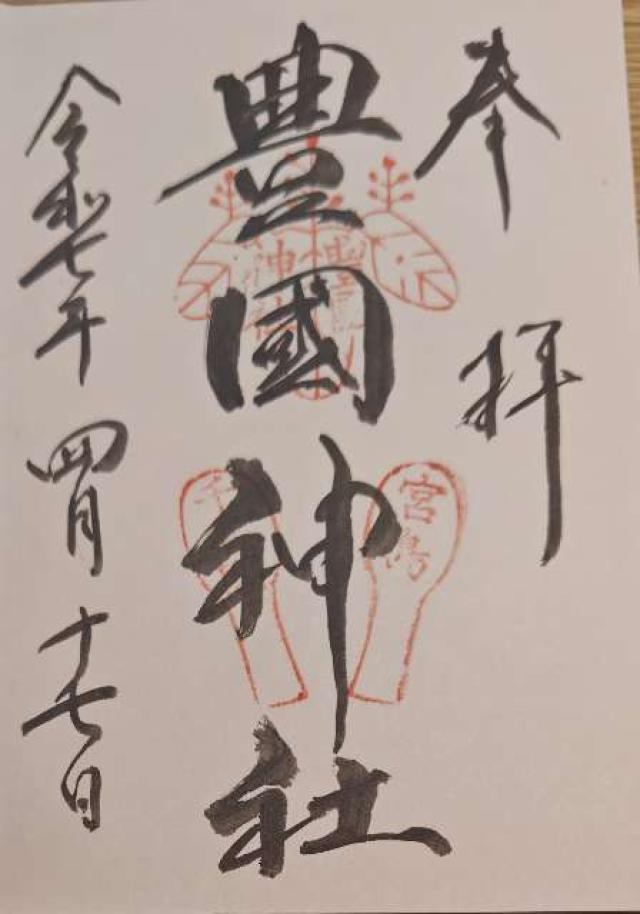 奉拝
豊國神社
令和七年四月十七日
宮島